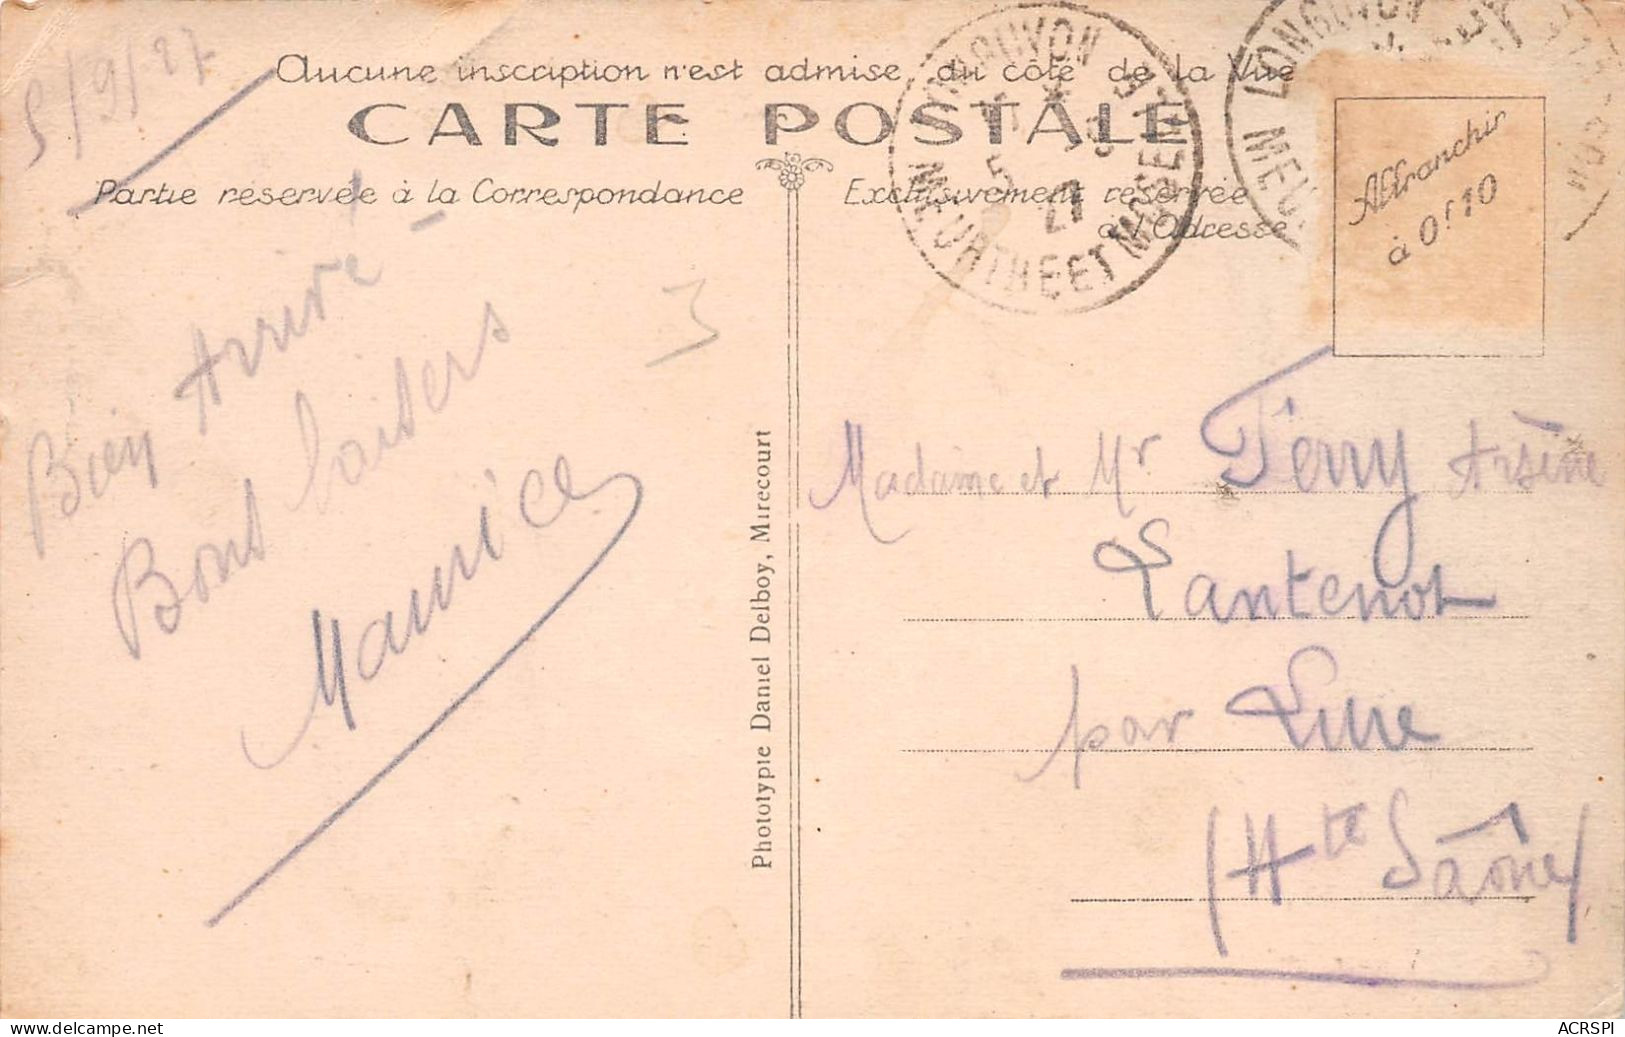 5/9/27
Aucune inscription n'est admise du côté de la Vue
CARTE POSTALE
Partie réservée à la Correspondance
Exclusivement réservée
à l'Adresse
LONGUYON
5 - 9
27
MEURTHE ET MOSELLE
LONGUYON
MEU
Affranchir
à 0f10
Bien Arrivé -
Bons baisers
Maurice
3
Phototypie Daniel Delboy, Mirecourt
Madame et Mr Ferry Arsène
Lantenot
par Lure
(Hte Saône)
delcampe.net
ACRSPI